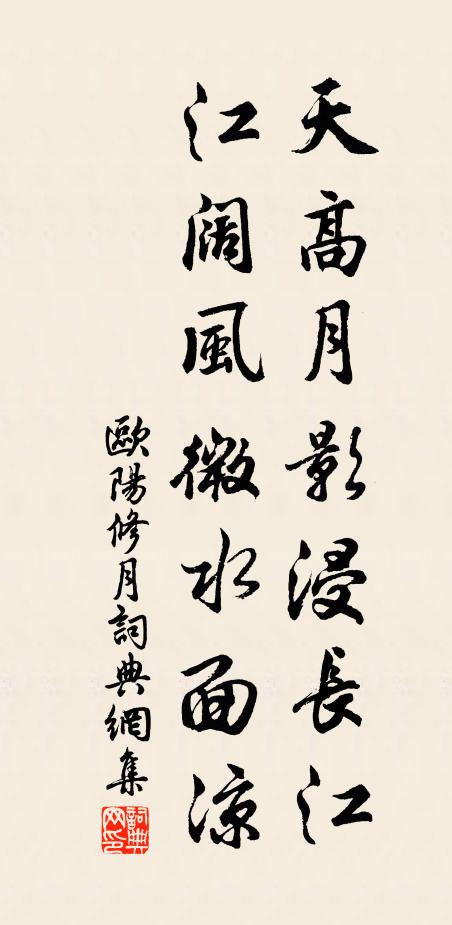 天高月影浸長江
江闊風微水面涼
歐陽修月詞典網集
詞典網印